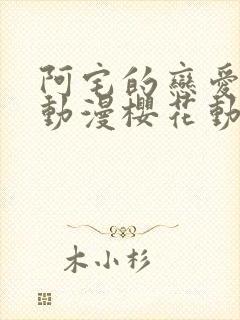 阿宅的戀愛
動漫櫻花動
木小杉